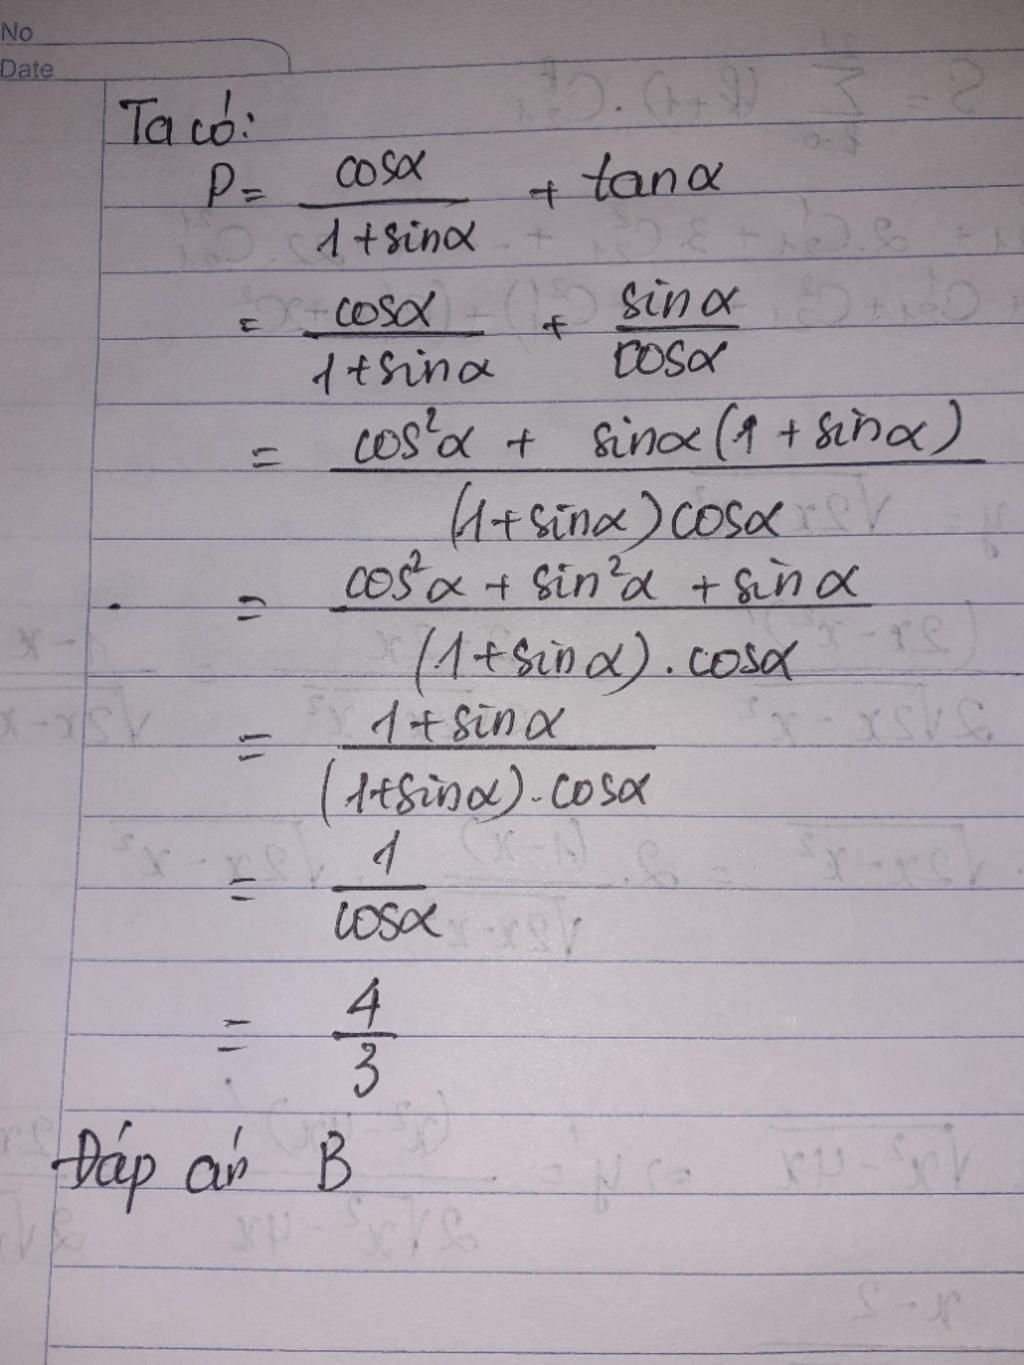 No
Date
Ta có:
P = cosα / 1+sinα + tanα
= cosα / 1+sinα + sinα / cosα
= cos²α + sinα(1+sinα) / (1+sinα)cosα
= cos²α + sin²α + sinα / (1+sinα).cosα
= 1+sinα / (1+sinα).cosα
= 1 / cosα
= 4 / 3
Đáp án B